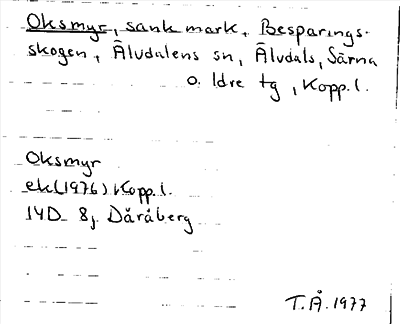 Oksmyr, sank mark, Besparings-
skogen, Älvdalens sn, Älvdals, Särna
o. Idre tg, Kopp. l.
Oksmyr
ek (1976) Kopp. l.
14D 8j Dåråberg
T.Å. 1977